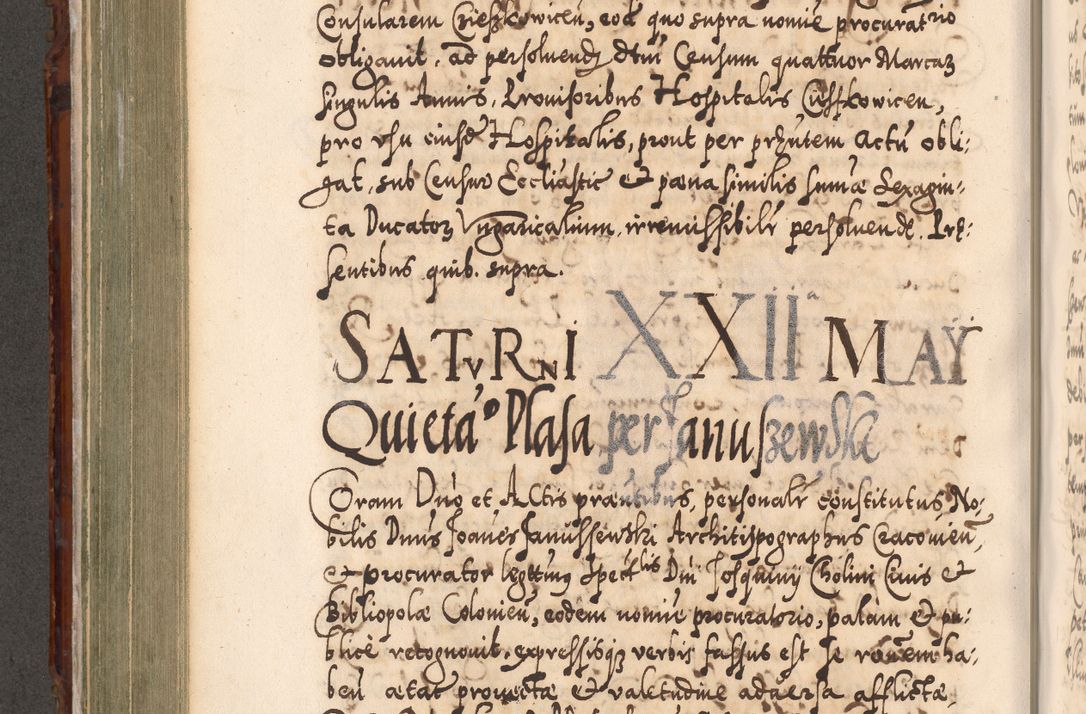 Consularem Cieszkowicen, eod quo supra nomie procuratrio
obligavit, ad persoluend dtui Censum quattuor Marcaz
singulis Annis, Provisoribus Hospitalis Cieszkowicen,
pro vsu eiusd Hospitalis, prout per prżntem Actū obli:
gat, sub Censur Eccliastic & pæna similis sumæ Sexagin:
ta Ducatoz Vngaricalium, irremissibilr persoluend. Prę:
sentibus quib. supra.
SATVRNI XXII MAŸ
Quietāo Plasa per Januszewski
Coram Dno et Actis præntibus, personalr constitutus No:
bilis Dnus Joanes Janussewski Architypographus Cracovien,
& procurator legttimus Spectlis Dni Josquiny Cholini Civis &
Bibliopolæ Colonien, eodem nomie procuratorio, palam & pu:
blice recognovit, expressisqz verbis fassus est se ha:
ben ætat provectæ & valetudine adversa afflictæ